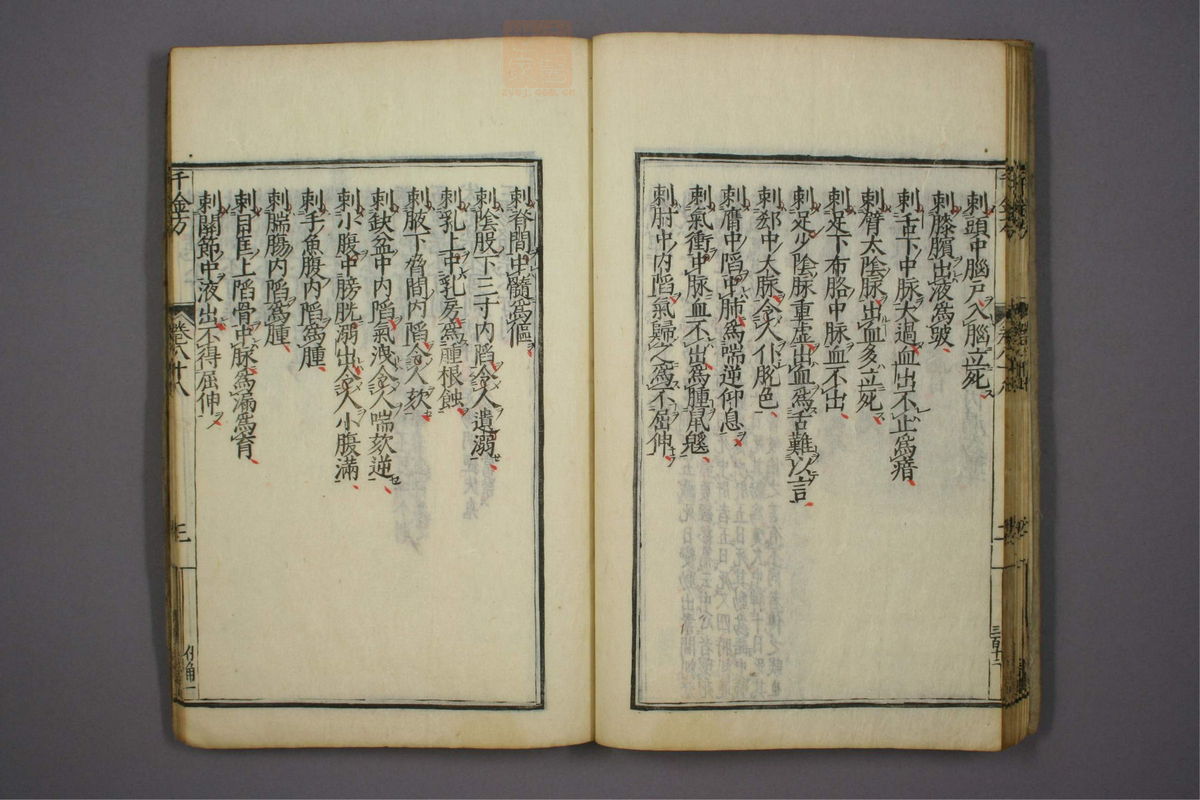 刺頭中腦戶入腦立死
刺膝臏出液爲跛
刺舌下中脉大過血出不止爲瘖
刺臂太陰脉出血多立死
刺足下布胳中脉血不出
刺足少陰脉重虛出血爲舌難以言
刺郄中大脉令人仆脫色
刺膺中陷中肺爲喘逆仰息
刺氣衝中脉血不出爲腫鼠鼷
刺肘中内陷氣歸之爲不屈伸
三百十二
刺脊間中髓爲傴
刺陰股下三寸内陷令人遺溺
刺乳上中乳房爲腫根蝕
刺腋下脅間内陷令人欬
刺缺盆中内陷氣洩令人喘欬逆
刺小腹中膀胱溺出令人小腹滿
刺手魚腹内陷爲腫
刺腨腸内陷爲腫
刺目匡上陷骨中脉爲漏爲盲
刺關節中液出不得屈伸
千金方
卷八十八
三